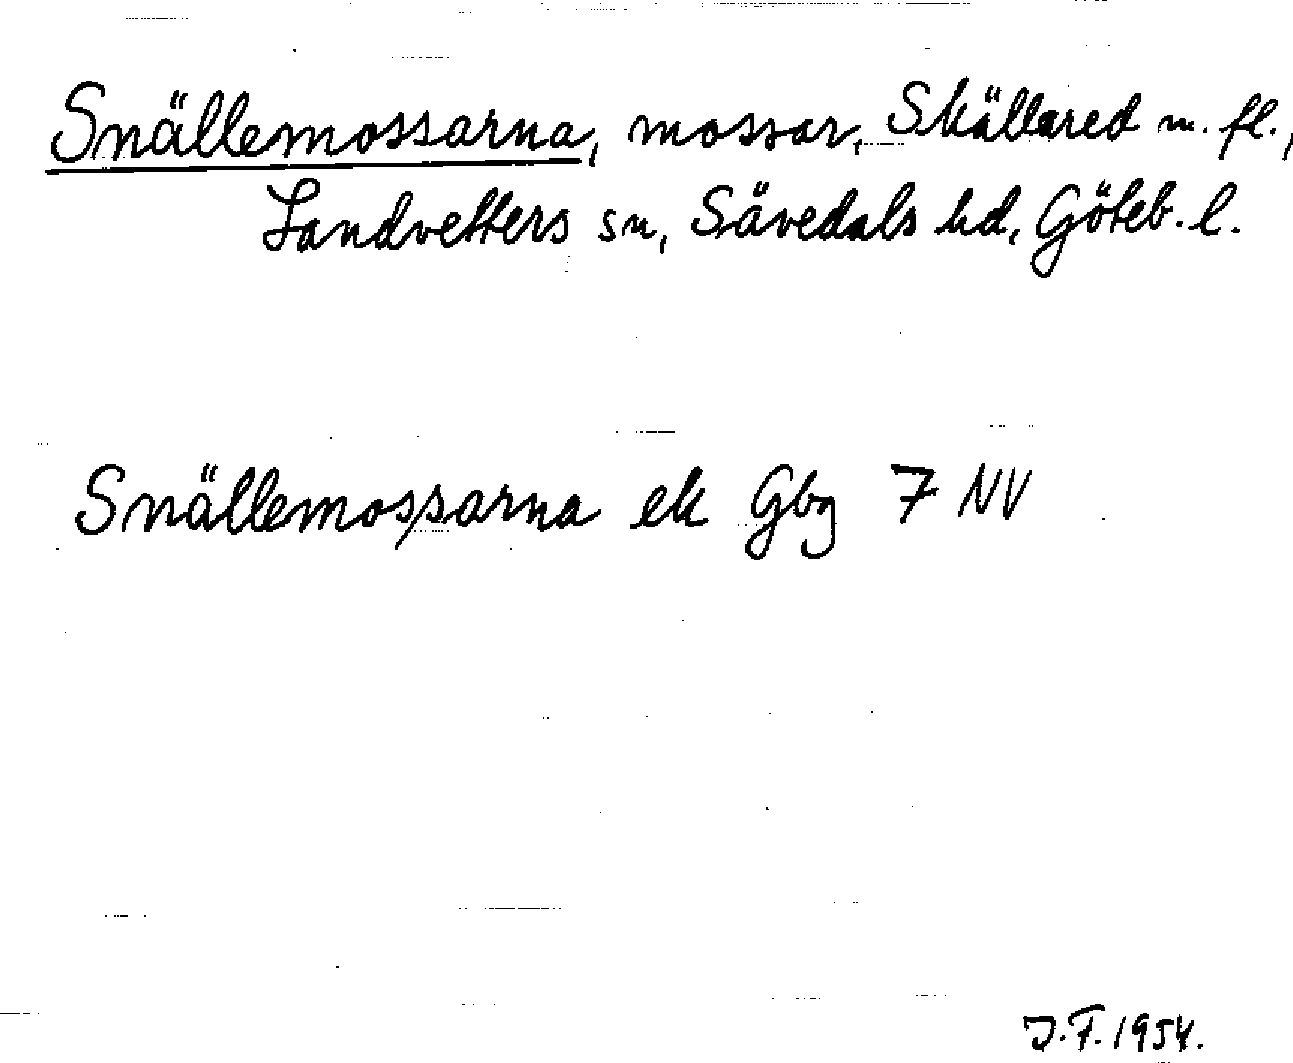 Snällemossarna, mossar, Skällared m. fl.,
Landvetters sn, Sävedals hd, Göteb. l.
Snällemossarna ek Gbg 7 NV
J.F. 1954.